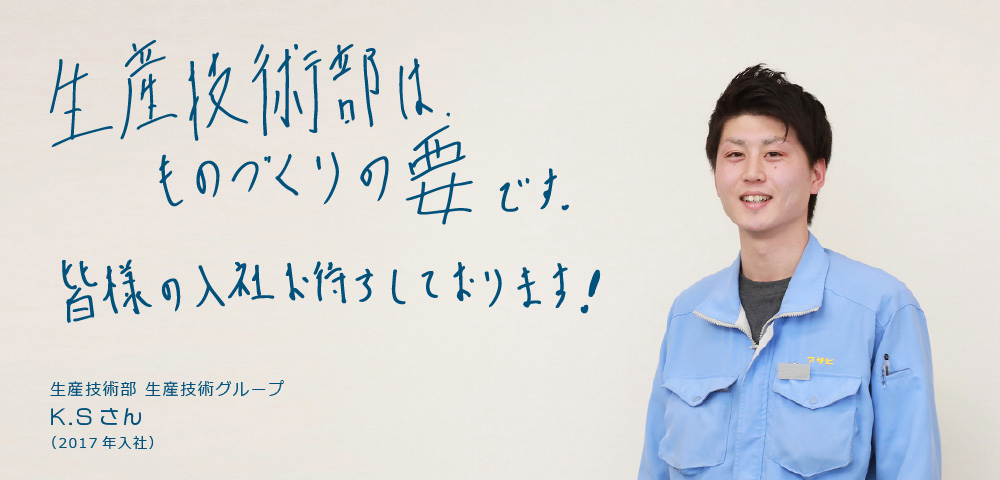 生産技術部は、
ものづくりの要です。
皆様の入社お待ちしております!
生産技術部 生産技術グループ
K.Sさん
（2017年入社）
アサヒ